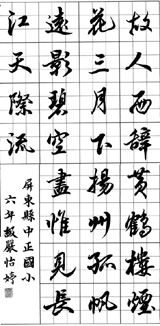 故人西辭黃鶴樓煙
花三月下揚州孤帆
遠影碧空盡惟見長
江天際流
屏東縣中正國小
六年級嚴怡婷